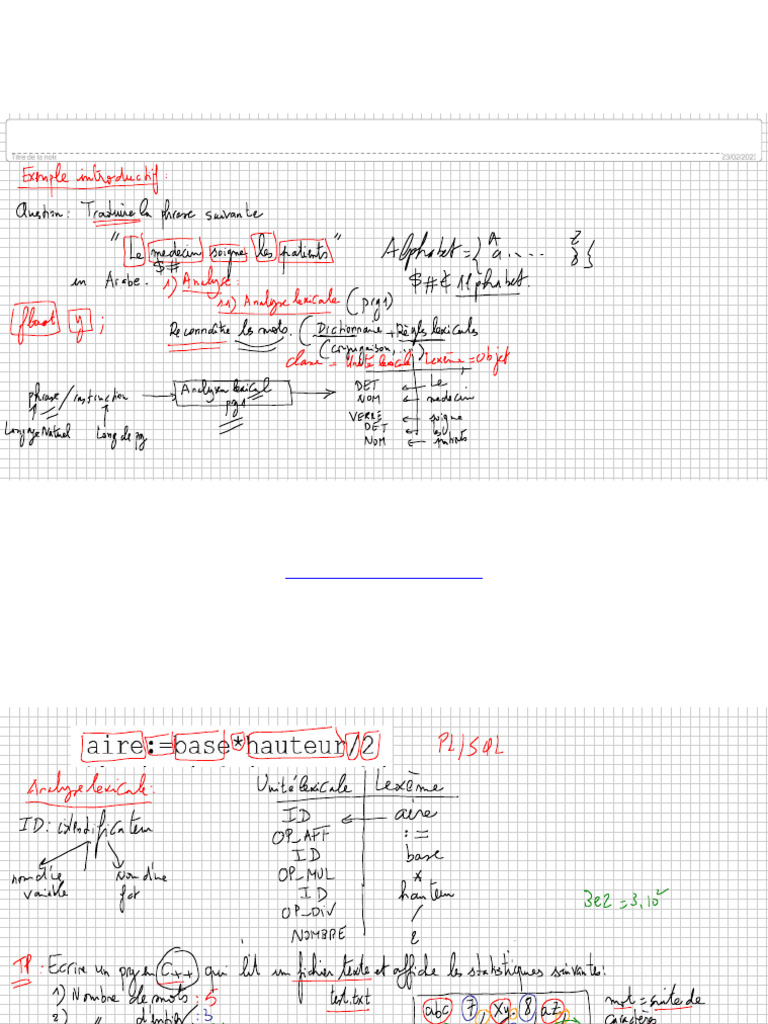 Titre de la note 23/02/202
Exemple introductif :
Question : Traduire la phrase suivante
"Le medecin soigne les patients"
$#
Alphabet = { A a . . . . Z z }
$#€ Alphabet.
en Arabe. 1) Analyse :
11) Analyse lexicale (prg1)
float y ;
Reconnaître les mots. (Dictionnaire + Règles lexicales
(conjugaison, ...)
classe = Unité lexical Lexème = Objet
phrase / instruction → Analyseur lexical → 
pg1
Langage Naturel Lang de pg
DET ← Le
NOM ← medecin
VERBE ← soigne
DET ← les
NOM ← patients
aire:=base*hauteur/2 PL/SQL
Analyse lexicale :
Unité lexicale Lexème
ID : identificateur
ID ← aire
OP_AFF :=
ID base
OP_MUL *
ID hauteur
OP_DIV /
NOMBRE 2
nom d'une variable
Nom d'une fct
3e2 = 3.10²
TP : Ecrire un prg en C++ qui lit un fichier texte et affiche les statistiques suivantes :
1) Nombre de mots : 5 test.txt
abc 7, xy, 8, az mot = suite de
2) " d'entier : 3 caractères